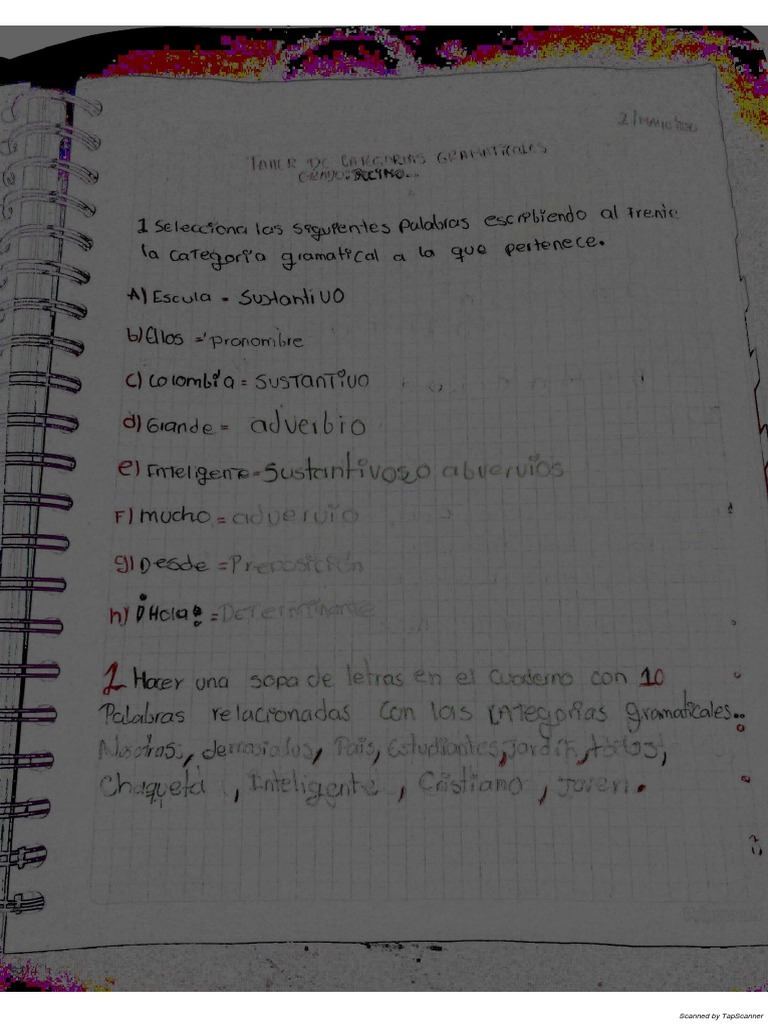 TALLER DE CATEGORIAS GRAMATICALES
1 Selecciona las siguientes Palabras escribiendo al Frente
la categoria gramatical a la que pertenece.
A) Escula = SustantiVO
b) Ellos = pronombre
c) Colombia = SUSTANTIVO
d) Grande = adverbio
e) Inteligente = Sustantivos o abvervios
F) mucho = advervio
g) Desde = Preposición
h) ¡Hola! = Determinante
1 Hacer una sopa de letras en el cuaderno con 10
Palabras relacionadas con las categorias gramaticales..
demasiados, Pais, Estudiantes, Jardín,
Chaqueta, Inteligente, Cristiano, Joven.
Scanned by TapScanner